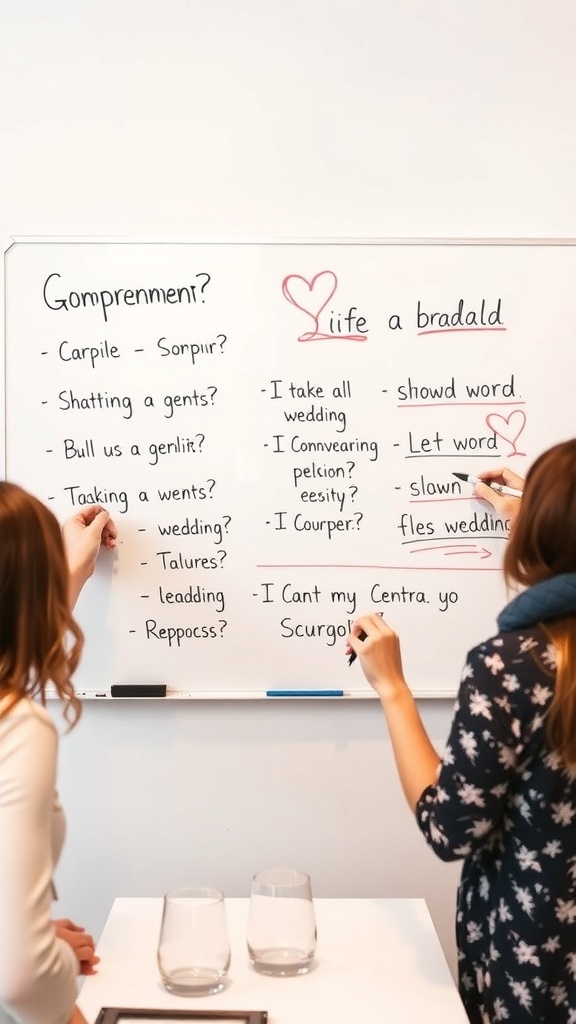 Gomprenment?
- Carpile - Sorpiır?
- Shatting a gents?
- Bull us a genlit?
- Taaking a wents?
- wedding?
- Talures?
- leadding
- Reppocss?
iife a bradald
- I take all
wedding
- I Connvearing
pelcion?
eesity?
- I Courper.?
- showd word.
- Let word
- slown
fles wedding
- I Cant my Centra. yo
Scurgol